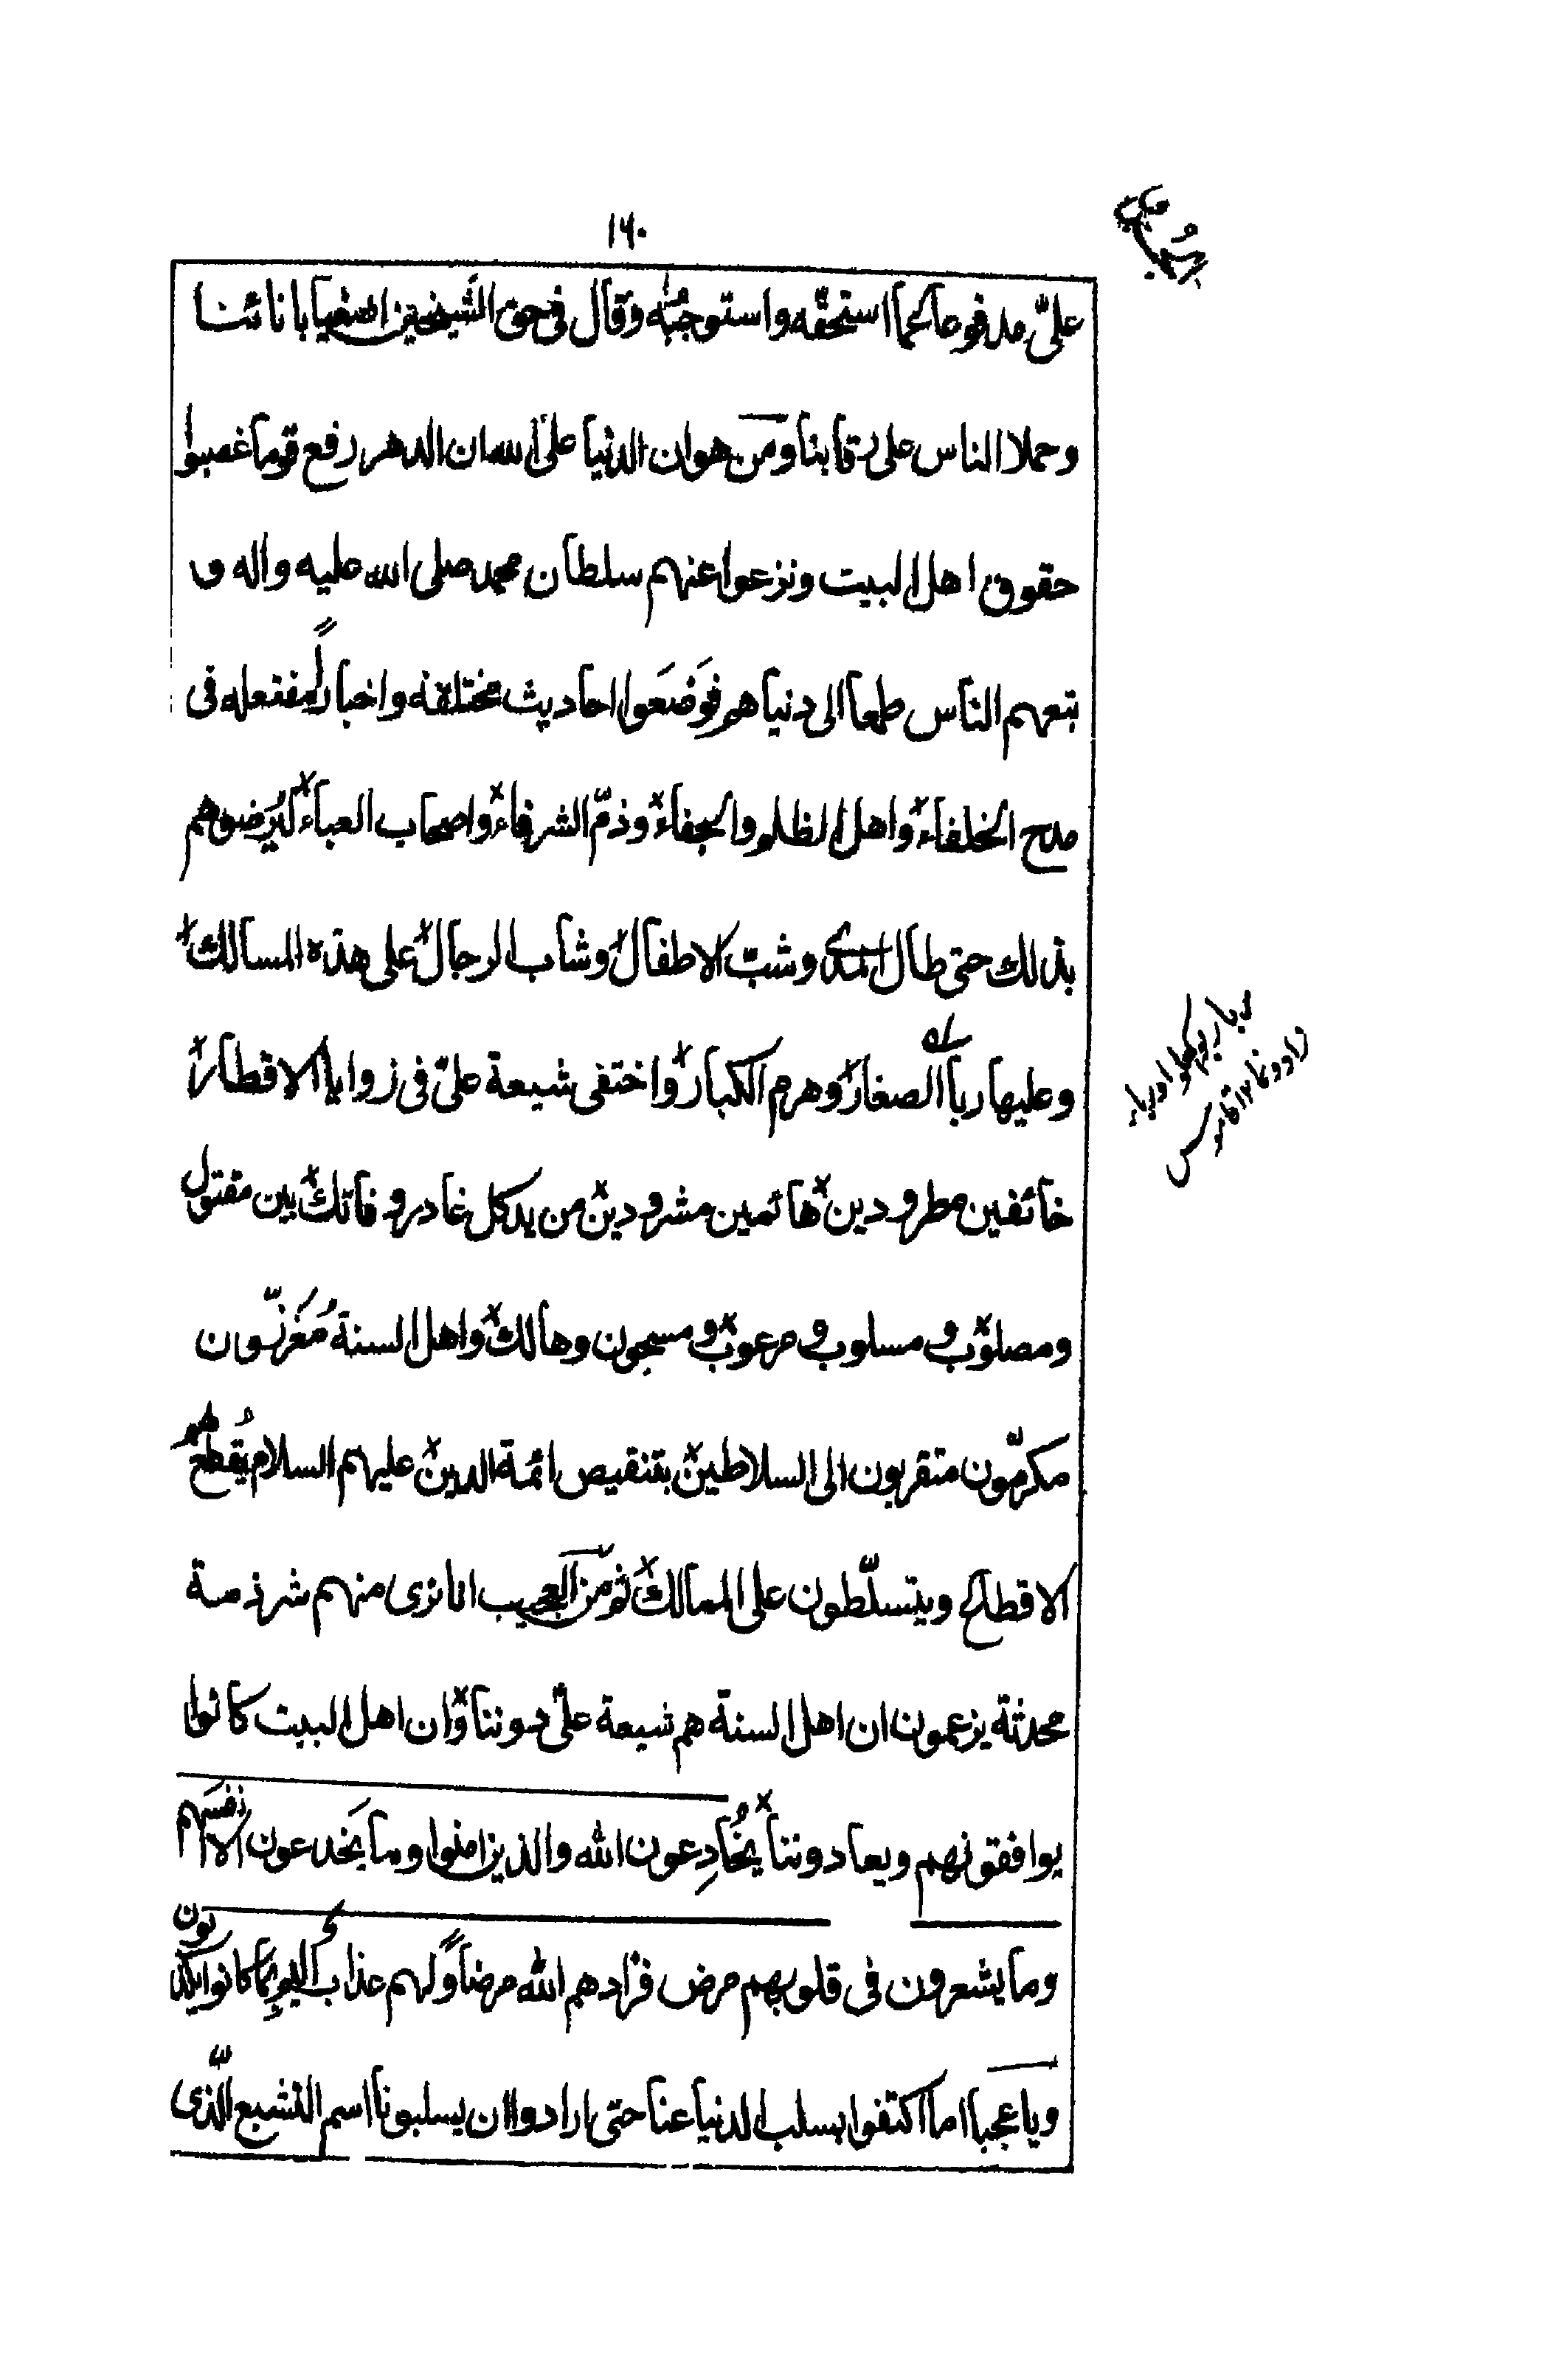 ١٦٠
علیّ مدفوعا عما استحقّه واستوجبه وقال فی حق الشیخین اصغیا بانائنا
وحملا الناس علی رقابنا ومن هوان الدنیا علی الله ان الدهر رفع قوما غصبوا
حقوق اهل البیت ونزعوا عنهم سلطان محمد صلی الله علیه واله و
تبعهم الناس طمعا الی دنیاهم فوضَعوا احادیث مختلقه واخباراً مفتعله فی
مدح الخلفاء واهل الظلم والجفاء وذمّ الشرفاء واصحاب العباء لیُرَضوهم
بذلك حتی طال المدی وشبّ الاطفال وشاب الرجال علی هذه المسالك
وعلیها ربا الصغار وهرم الکبار واختفی شیعة علیّ فی زوایا الاقطار
خائفین مطرودین هائمین مشرودین من ید کل غادر وفاتك بین مقتول
ومصلوب ومسلوب ومرعوب ومسجون وهالك واهل السنة مُعَزّزون
مکرّمون متقربون الی السلاطین بتنقیص ائمة الدین علیهم السلام یُقطعهم
الاقطاع ویتسلّطون علی الممالك ثم من العجیب انا نری منهم شرذمة
محدثة یزعمون ان اهل السنة هم شیعة علیّ دوننا وان اهل البیت کانوا
یوافقونهم ویعادوننا یُخادِعون الله والذین امنوا وما یَخدعون الا انفسهم
وما یشعرون فی قلوبهم مرض فزادهم الله مرضاً ولهم عذاب الیم بما کانوا یکذبون
ویاعجبا اما اکتفوا بسلب الدنیا عنا حتی ارادوا ان یسلبونا اسم التشیع الّذی